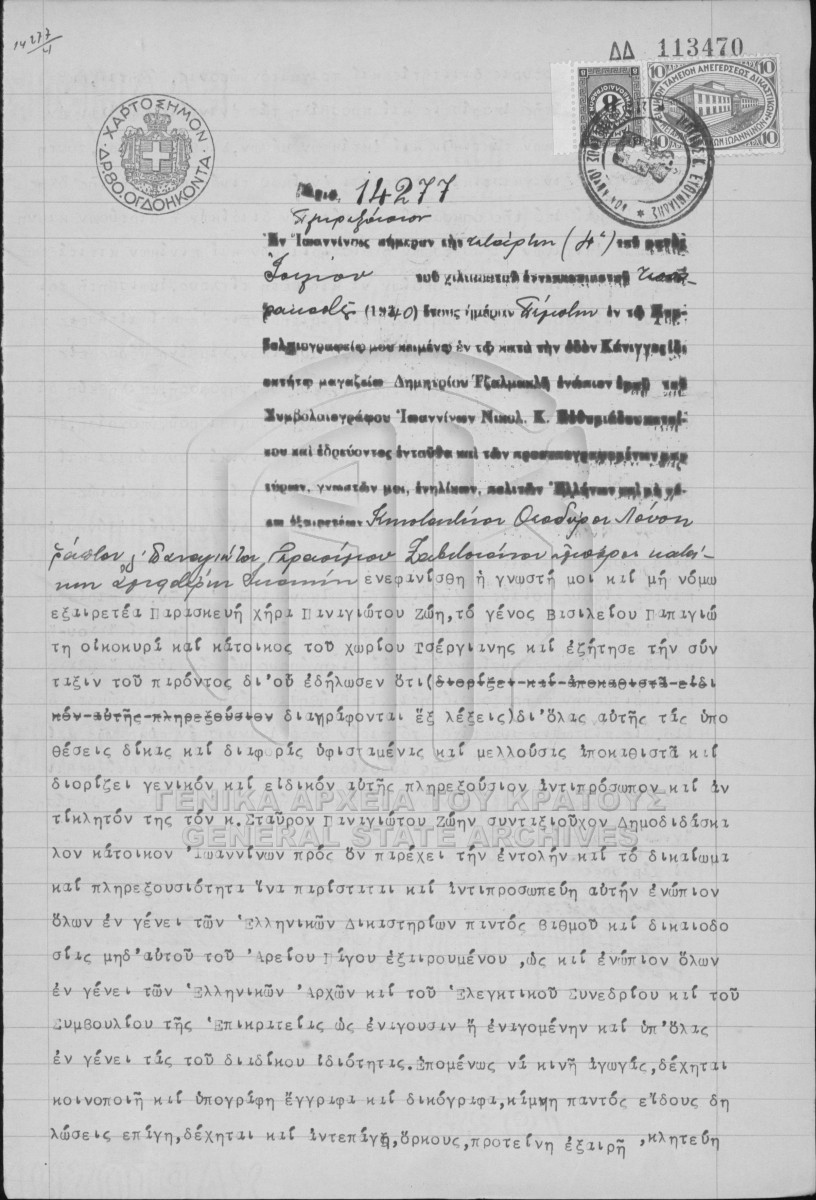 14277/4
ΔΔ 113470
ΧΑΡΤΟΣΗΜΟΝ
ΔΡ. 80. ΟΓΔΟΗΚΟΝΤΑ
8
10 ΤΑΜΕΙΟΝ ΑΝΕΓΕΡΣΕΩΣ 10
10 ΙΩΑΝΝΙΝΩΝ 10
Αριθ. 14277
Πληρεξούσιον
Ἐν Ἰωαννίνοις σήμερον τὴν τετάρτην (4ην) τοῦ μηνὸς
Ἰουλίου τοῦ χιλιοστοῦ ἐννεακοσιοστοῦ τεσσα-
ρακοστοῦ (1940) ἔτους ἡμέραν Πέμπτην ἐν τῷ Συμ-
βολαιογραφείῳ μου κειμένῳ ἐν τῷ κατὰ τὴν ὁδὸν Κάνιγγος ἰδι
οκτήτῳ μαγαζείῳ Δημητρίου Τζαλμακλῆ ἐνώπιον ἐμοῦ τοῦ
Συμβολαιογράφου Ἰωαννίνων Νικολ. Κ. Εὐθυμιάδου κατοί-
κου καὶ ἑδρεύοντος ἐνταῦθα καὶ τῶν προσυπογραφομένων μαρ
τύρων, γνωστῶν μοι, ἐνηλίκων, πολιτῶν Ἑλλήνων καὶ μὴ
ἐξαιρετέων Κωνσταντίνου Θεοδώρου
ράπτου Παναγιώτου Γερασίμου
ἐνεφανίσθη ἡ γνωστή μοι καί μή νόμω
εξαιρετέα Παρασκευή χήρα Παναγιώτου Ζώη,τό γένος Βασιλείου Παπαγιώ
τη οικοκυρά καί κάτοικος του χωρίου Τσέργιανης καί εζήτησε τήν σύν
ταξιν του παρόντος δι'οὗ εδήλωσεν ὅτι(διορίζει καί ἀποκαθιστᾶ εἰδι
κόν αὐτῆς πληρεξούσιον διαγράφονται ἕξ λέξεις)δι'ὅλας αὐτῆς τάς ὑπο
θέσεις δίκας καί διαφοράς ὑφισταμένας καί μελλούσας ἀποκαθιστᾶ καί
διορίζει γενικόν καί εἰδικόν αὐτῆς πληρεξούσιον ἀντιπρόσωπον καί ἀν
τίκλητόν της τόν κ.Σταῦρον Παναγιώτου Ζώην συνταξιοῦχον Δημοδιδάσκα
λον κάτοικον Ἰωαννίνων πρός ὅν παρέχει τήν ἐντολήν καί τό δικαίωμα
καί πληρεξουσιότητα ἵνα παρίσταται καί ἀντιπροσωπεύη αὐτήν ἐνώπιον
ὅλων ἐν γένει τῶν Ἑλληνικῶν Δικαστηρίων παντός βαθμοῦ καί δικαιοδο
σίας μηδ'αὐτοῦ τοῦ Ἀρείου Πάγου ἐξαιρουμένου,ὡς καί ἐνώπιον ὅλων
ἐν γένει τῶν Ἑλληνικῶν Ἀρχῶν καί τοῦ Ἐλεγκτικοῦ Συνεδρίου καί τοῦ
Συμβουλίου τῆς Ἐπικρατείας ὡς ἐνάγουσαν ἤ ἐναγομένην καί ὑπ'ὅλας
ἐν γένει τάς τοῦ διαδίκου ἰδιότητας.Ἑπομένως νά κινῆ ἀγωγάς,δέχηται
κοινοποιῆ καί ὑπογράφη ἔγγραφα καί δικόγραφα,κάμνη παντός εἴδους δη
λώσεις ἐπάγη,δέχηται καί ἀντεπάγη,ὅρκους,προτείνη ἐξαιρῆ,κλητεύη
ΓΕΝΙΚΑ ΑΡΧΕΙΑ ΤΟΥ ΚΡΑΤΟΥΣ
GENERAL STATE ARCHIVES